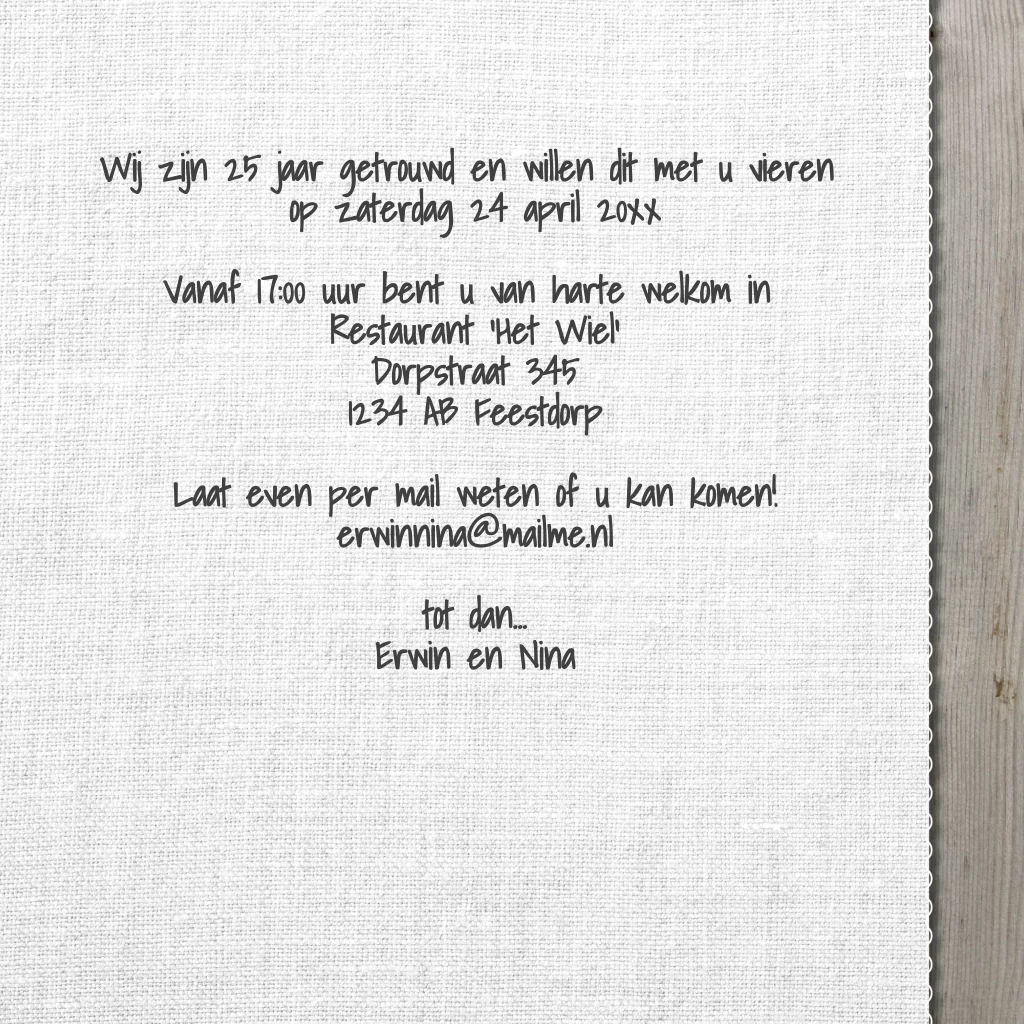 Wij zijn 25 jaar getrouwd en willen dit met u vieren
op zaterdag 24 april 20xx
Vanaf 17:00 uur bent u van harte welkom in
Restaurant 'Het Wiel'
Dorpstraat 345
1234 AB Feestdorp
Laat even per mail weten of u kan komen!
erwinnina@mailme.nl
tot dan...
Erwin en Nina